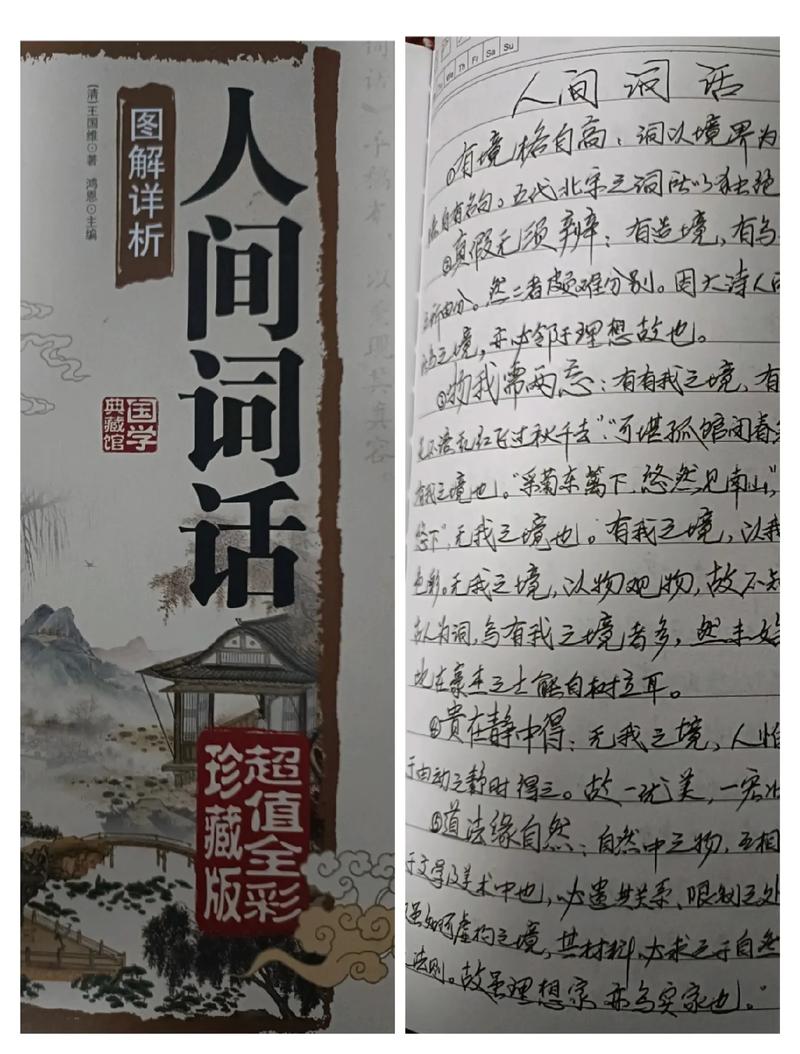 人间词话
图解详析
[清]王国维⊙著 鸿恩⊙主编
国学
典藏馆
超值全彩
珍藏版
词话》手稿本，以呈现其真容。
Th Fr Sa Su
人间词话
①有境格自高：词以境界为
自有名句。五代北宋之词所以独绝
②真假无须辨：有造境，有写
之所由分。然二者颇难分别。因大诗人所
之境，亦必邻于理想故也。
③物我需两忘：有有我之境，有
花不语乱红飞过秋千去"."可堪孤馆闭春
有我之境也。"采菊东篱下，悠然见南山"，
悠下"，无我之境也。有我之境，以我
色彩。无我之境，以物观物，故不知
古人为词，写有我之境者多，然未始
此在豪杰之士能自树立耳。
④贵在静中得：无我之境，人惟
于由动之静时得之。故一优美，一宏壮
⑤道法缘自然：自然中之物，互相
于文学及美术中也，必遗其关系、限制之处
虽如何虚构之境，其材料必求之于自然
法则。故虽理想家，亦写实家也。"